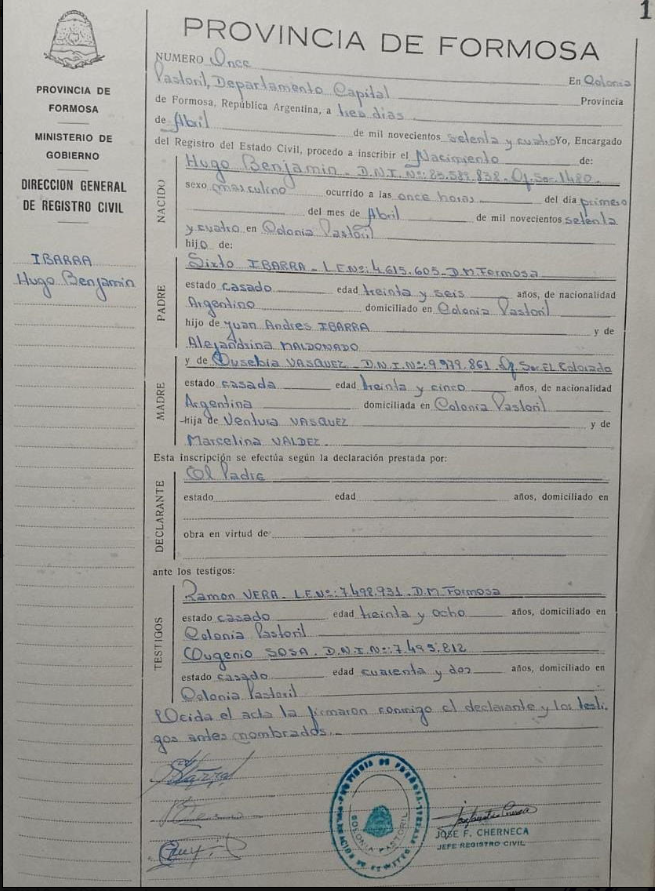 1
PROVINCIA DE FORMOSA
PROVINCIA DE
FORMOSA
MINISTERIO DE
GOBIERNO
DIRECCION GENERAL
DE REGISTRO CIVIL
IBARRA
Hugo Benjamin
NUMERO Once En Colonia
Pastoril, Departamento Capital Provincia
de Formosa, República Argentina, a tres días
de Abril de mil novecientos setenta y cuatro Yo, Encargado
del Registro del Estado Civil, procedo a inscribir el Nacimiento de:
NACIDO
Hugo Benjamin - D.N.I. Nº: 23.581.838. Of. Sec. 1480.
sexo masculino ocurrido a las once horas del día primero
del mes de Abril de mil novecientos setenta
y cuatro en Colonia Pastoril
hijo de:
PADRE
Sixto IBARRA - L.E.Nº: 4.615.605 - D.M. Formosa
estado casado edad treinta y seis años, de nacionalidad
Argentino domiciliado en Colonia Pastoril
hijo de Juan Andres IBARRA y de
Alejandrina MALDONADO
MADRE
y de Eusebia VASQUEZ - D.N.I. Nº: 9.979.861 Of. Sec. EL Colorado
estado casada edad treinta y cinco años, de nacionalidad
Argentina domiciliada en Colonia Pastoril
hija de Ventura VASQUEZ y de
Marcelina VALDEZ.
Esta inscripción se efectúa según la declaración prestada por:
DECLARANTE
El Padre
estado edad años, domiciliado en
obra en virtud de
ante los testigos:
TESTIGOS
Ramon VERA - L.E.Nº: 7.498.931 - D.M. Formosa
estado casado edad treinta y ocho años, domiciliado en
Colonia Pastoril
Eugenio SOSA - D.N.I. Nº: 7.495.812
estado casado edad cuarenta y dos años, domiciliado en
Colonia Pastoril
Leída el acta la firmaron conmigo el declarante y los testi
gos antes nombrados.-
PROVINCIA DE FORMOSA
COLONIA PASTORIL
JOSE F. CHERNECA
JEFE REGISTRO CIVIL